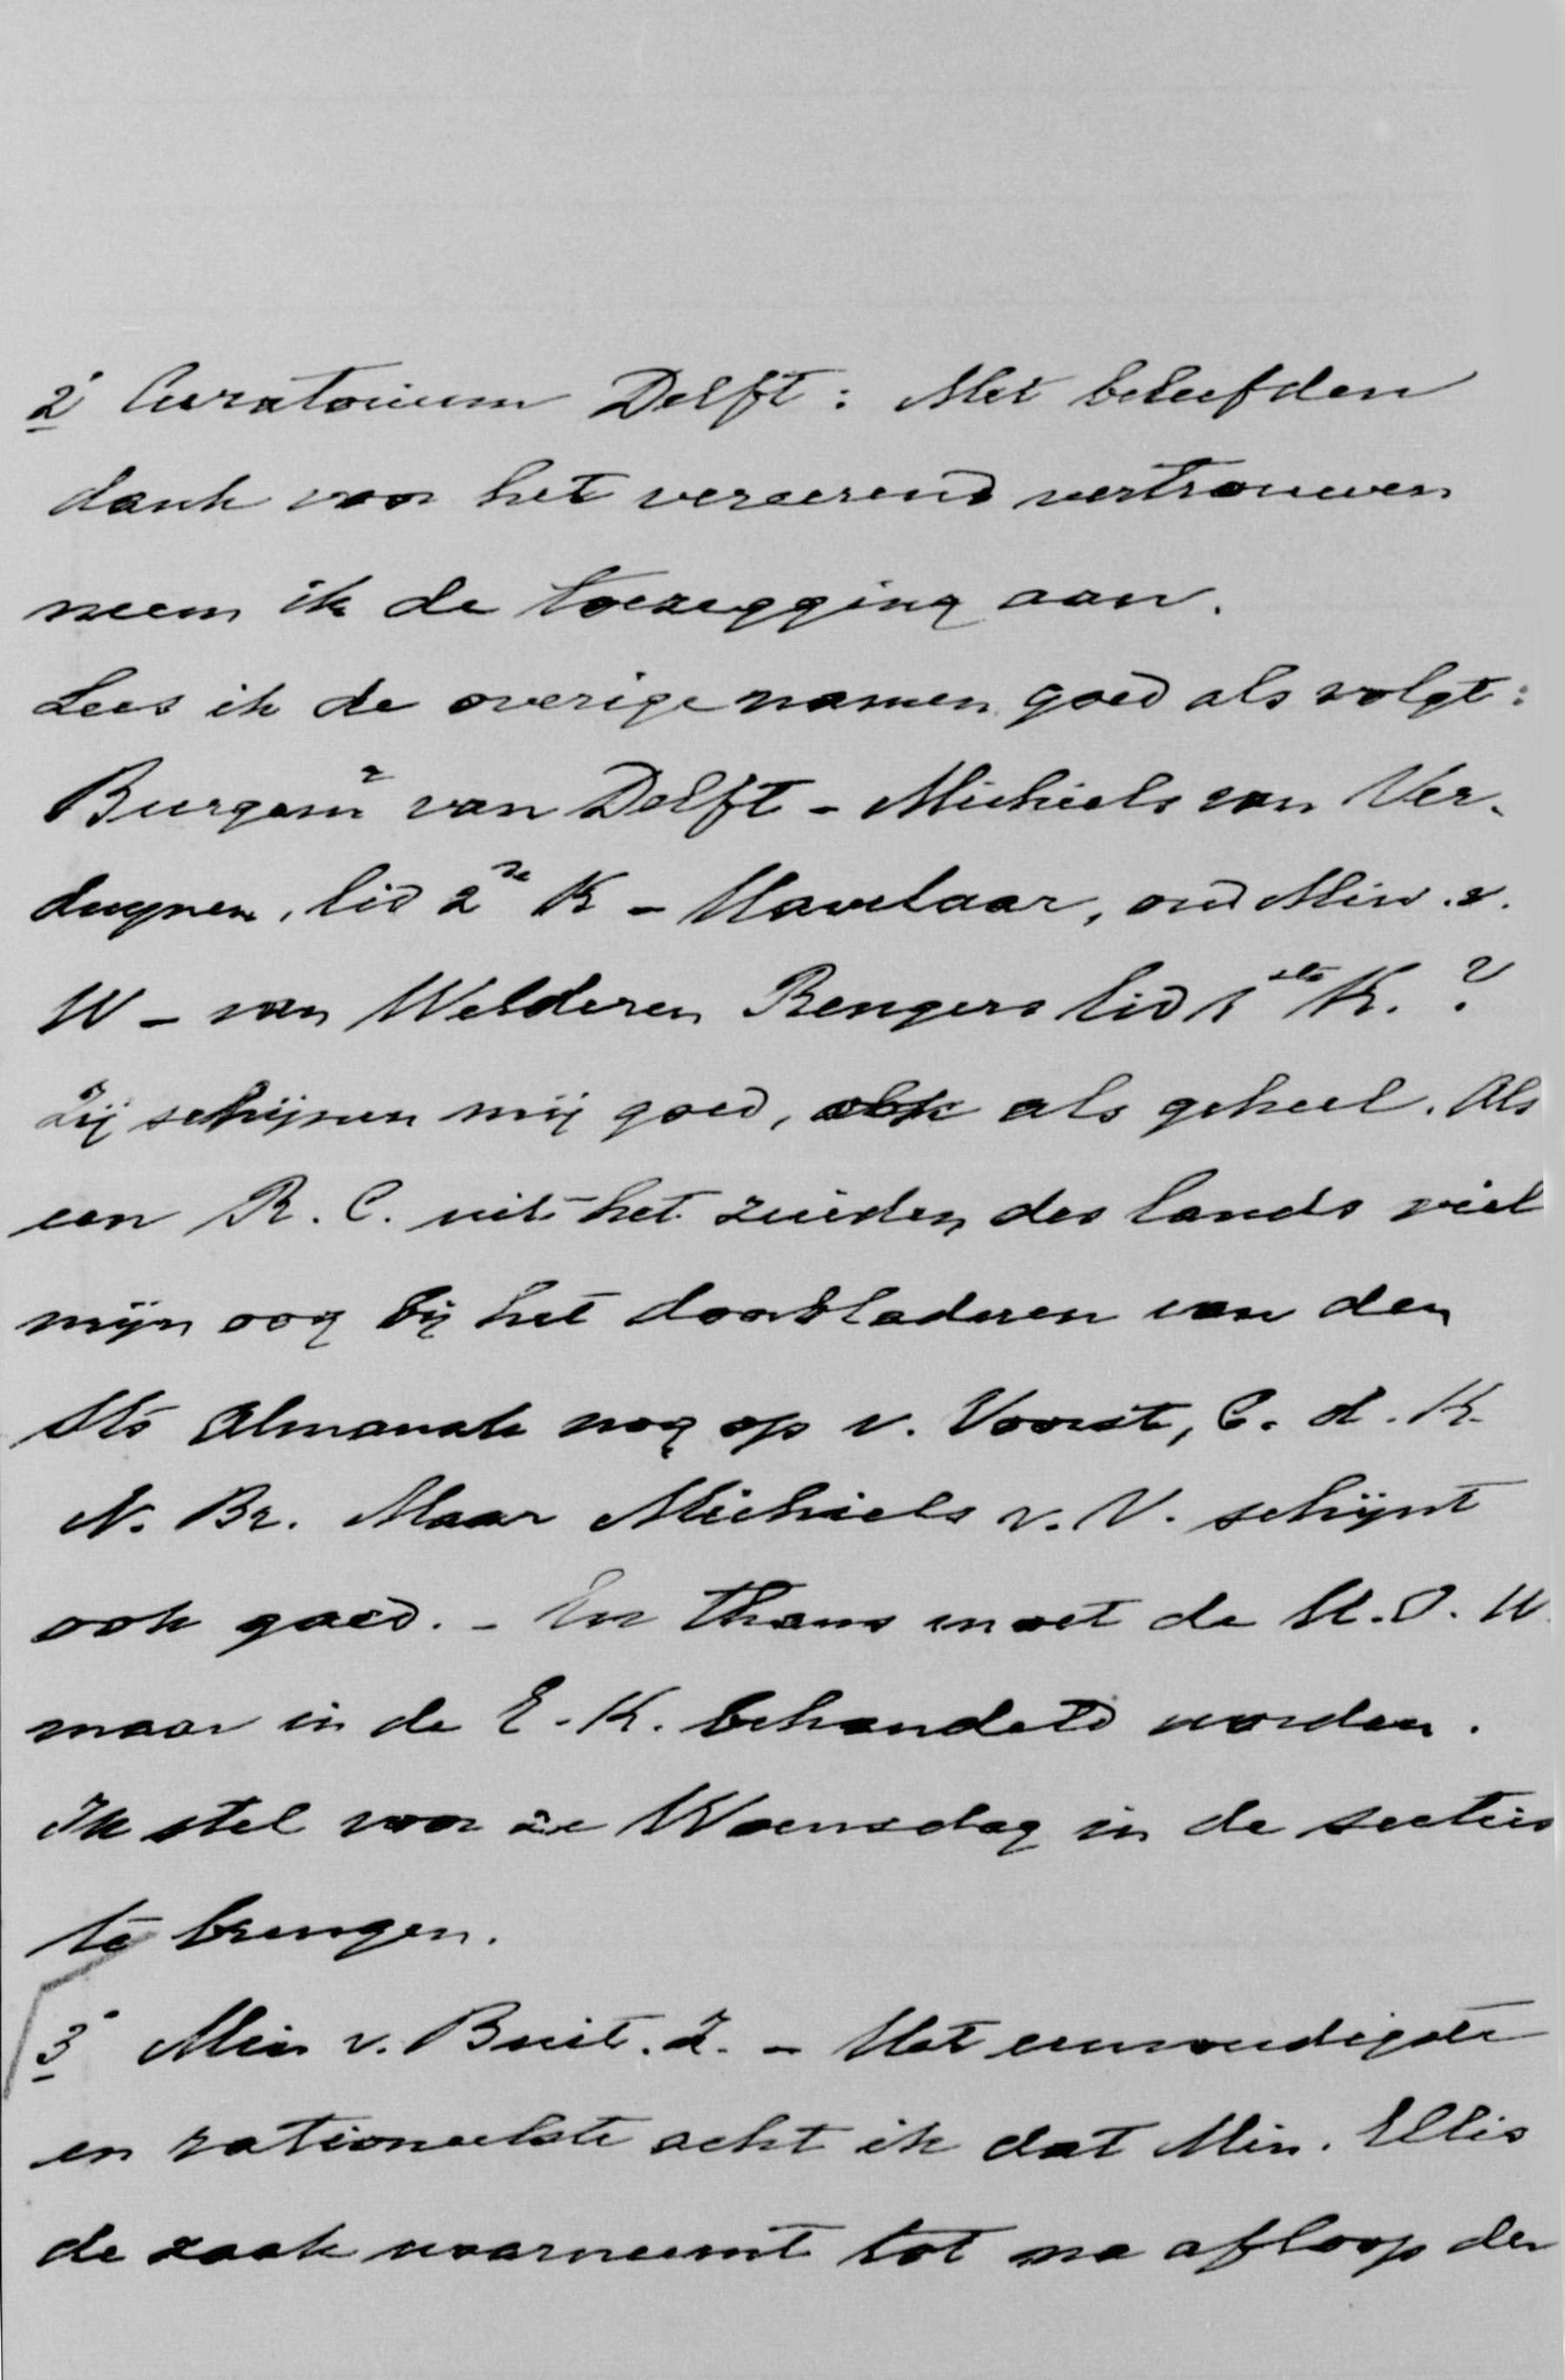 2° Curatorium Delft: Met beleefden
dank voor het vereerend vertrouwen
neem ik de toezegging aan.
Lees ik de overige namen goed als volgt:
Burgemr van Delft - Michiels van Ver-
duynen, lid 2de K - Havelaar, oud Min. v.
W - van Welderen Rengers lid 1ste K. ?
Zij schijnen mij goed, ook als geheel. Als
een R. C. uit het zuiden des lands viel
mijn oog bij het doorbladeren van den
Sts Almanak nog op v. Voorst, C. d. K.
N. Br. Maar Michiels v. V. schijnt
ook goed. - En thans moet de H.O.W.
maar in de E.K. behandeld worden.
Ik stel voor ze Woensdag in de secties
te brengen.
3° Min v. Buit. Z. - Het eenvoudigste
en rationeelste acht ik dat Min. Ellis
de zaak waarneemt tot na afloop der